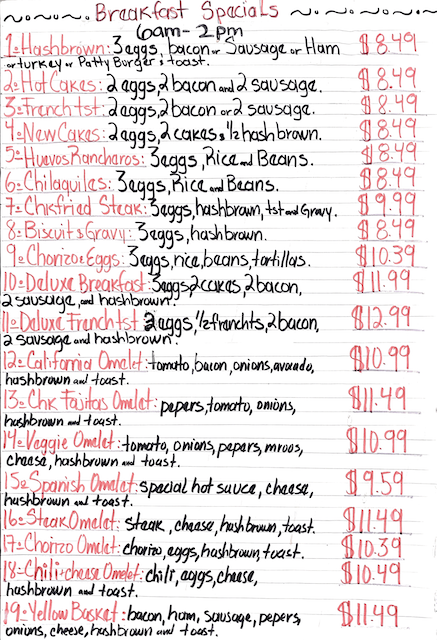 Breakfast Specials
6am-2pm
1-Hashbrown: 3 eggs, bacon or Sausage or Ham $8.49
or turkey or Patty Burger & toast.
2-Hot Cakes: 2 eggs, 2 bacon and 2 sausage. $8.49
3-French tst: 2 eggs, 2 bacon or 2 sausage. $8.49
4-New Cakes: 2 eggs, 2 cakes & 1/2 hashbrown. $8.49
5-Huevos Rancharos: 3 eggs, Rice and Beans. $8.49
6-Chilaquiles: 3 eggs, Rice and Beans. $8.49
7-Chkfried Steak: 3 eggs, hashbrown, tst and Gravy. $9.99
8-Biscuit & Gravy: 3 eggs, hashbrown. $8.49
9-Chorizo & Eggs: 3 eggs, rice, beans, tortillas. $10.39
10-Deluxe Breakfast: 3 eggs, 2 cakes, 2 bacon, $11.99
2 sausage, and hashbrown.
11-Deluxe French tst 2 eggs, 1/2 franchts, 2 bacon, $12.99
2 sausage and hashbrown.
12-California Omelet: tomato, bacon, onions, avocado, $10.99
hashbrown and toast.
13-Chk Fajitas Omelet: pepers, tomato, onions, $11.49
hashbrown and toast.
14-Veggie Omelet: tomato, onions, pepers, mroos, $10.99
cheese, hashbrown and toast.
15-Spanish Omelet: special hot sauce, cheese, $9.59
hashbrown and toast.
16-Steak Omelet: steak, cheese, hashbrown, toast. $11.49
17-Chorizo Omelet: chorizo, eggs, hashbrown, toast. $10.39
18-Chili-cheese Omelet: chili, eggs, cheese, $10.49
hashbrown and toast.
19-Yellow Basket: bacon, ham, sausage, pepers, $11.49
onions, cheese, hashbrown and toast.